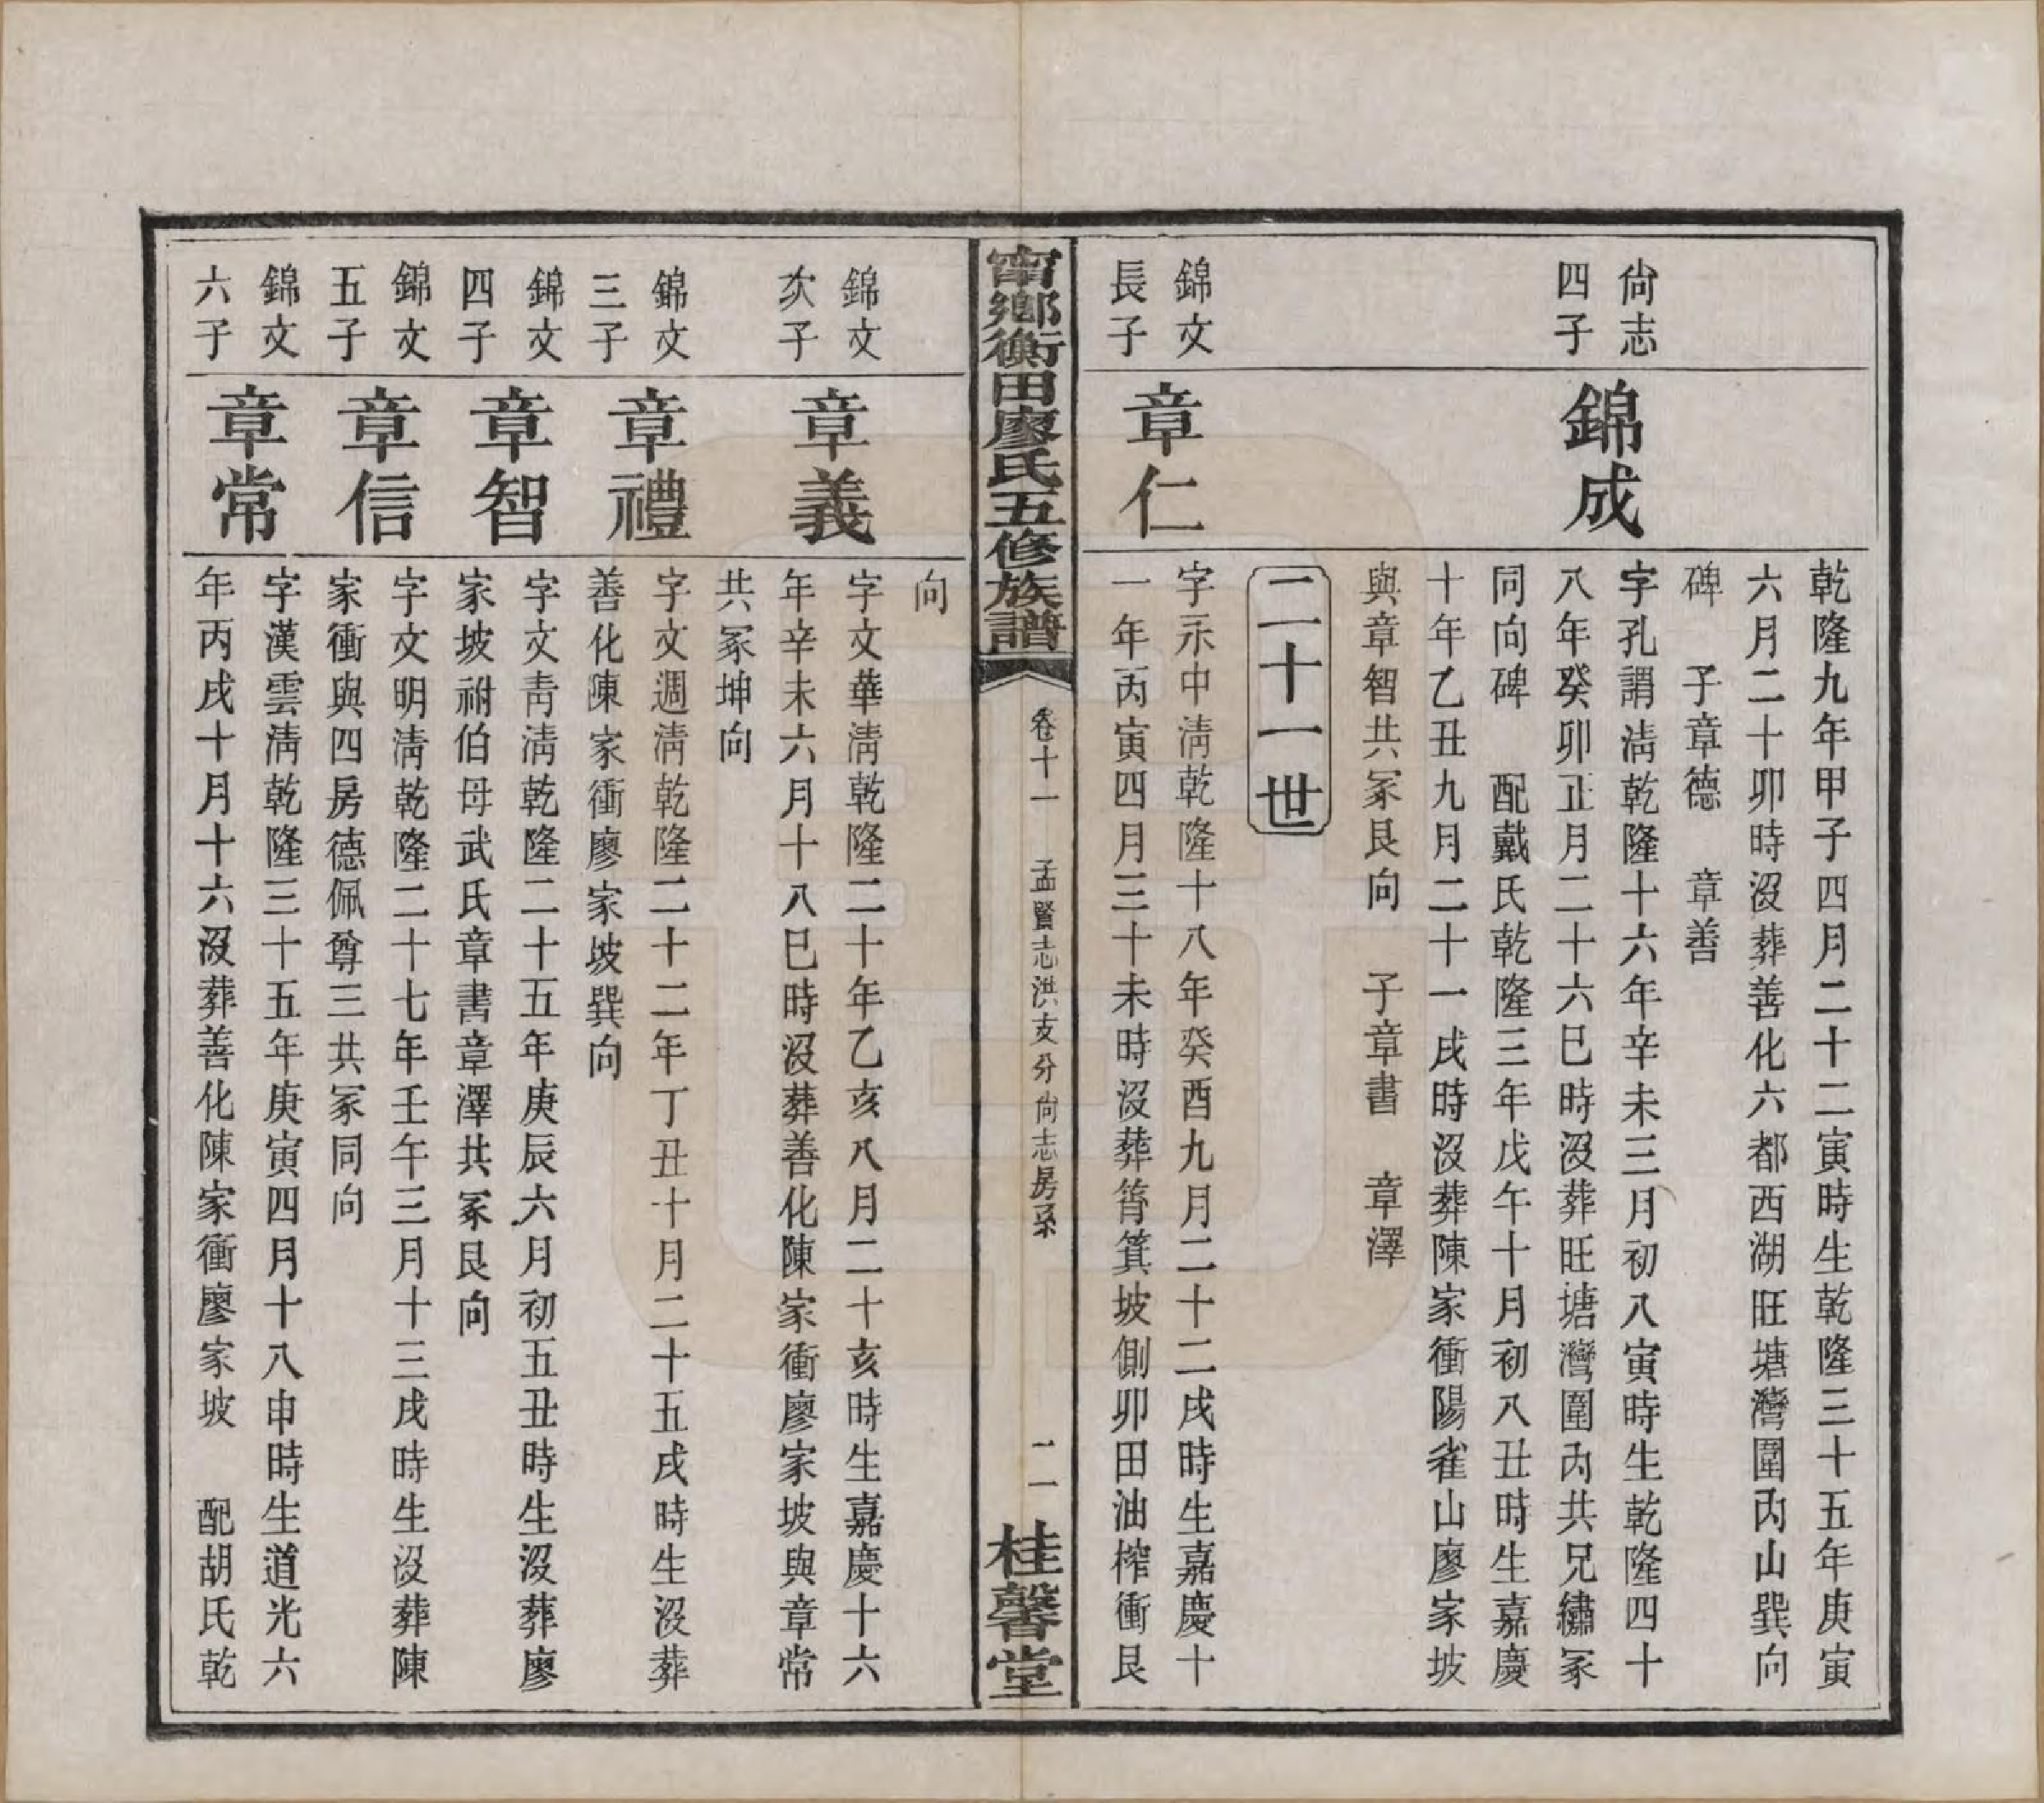 乾隆九年甲子四月二十二寅時生乾隆三十五年庚寅
六月二十卯時沒葬善化六都西湖旺塘灣圍內山巽向
碑　子章德　章善
尙志
四子
錦成
字孔謂淸乾隆十六年辛未三月初八寅時生乾隆四十
八年癸卯正月二十六巳時沒葬旺塘灣圍內共兄繡冢
同向碑　配戴氏乾隆三年戊午十月初八丑時生嘉慶
十年乙丑九月二十一戌時沒葬陳家衝陽雀山廖家坡
與章智共冢艮向　子章書　章澤
二十一世
錦文
長子
章仁
字永中淸乾隆十八年癸酉九月二十二戌時生嘉慶十
一年丙寅四月三十未時沒葬筲箕坡側卯田油榨衝艮
甯鄉衡田廖氏五修族譜
卷十一　孟賢志洪支分尙志房系
二一
桂馨堂
向
錦文
次子
章義
字文華淸乾隆二十年乙亥八月二十亥時生嘉慶十六
年辛未六月十八巳時沒葬善化陳家衝廖家坡與章常
共冢坤向
錦文
三子
章禮
字文週淸乾隆二十二年丁丑十月二十五戌時生沒葬
善化陳家衝廖家坡巽向
錦文
四子
章智
字文靑淸乾隆二十五年庚辰六月初五丑時生沒葬廖
家坡祔伯母武氏章書章澤共冢艮向
錦文
五子
章信
字文明淸乾隆二十七年壬午三月十三戌時生沒葬陳
家衝與四房德佩尊三共冢同向
錦文
六子
章常
字漢雲淸乾隆三十五年庚寅四月十八申時生道光六
年丙戌十月十六沒葬善化陳家衝廖家坡　配胡氏乾